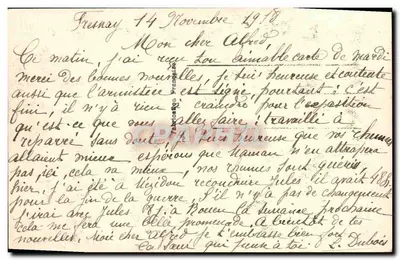 Fresnay 14 Novembre 1918.
Mon cher Alfred
Ce matin, j'ai reçu ton aimable carte de mardi
merci des bonnes nouvelles, je suis heureuse et contente
aussi que l'armistice est signé, pourtant : c'est
fini, il n'y a rien à craindre pour l'exposition
qu'est-ce que vous allez faire : travaillé à
réparré sans doute, je suis heureuse que nos rhumes
allaient mieux, espérons que Maman n'en attrapera
pas, ici, cela va mieux, nos rhumes sont guéris
hier, j'ai été à reconduire Jules il avait 48h
pour la fin de la guerre. S'il n'y a pas de changement
j'irai avec Jules à Rouen la semaine prochaine
cela me fera une belle promenade. A bientôt de tes
nouvelles. Mon cher Alfred je t'embrasse bien fort
Ta sœur qui pense à toi. L. Dubois